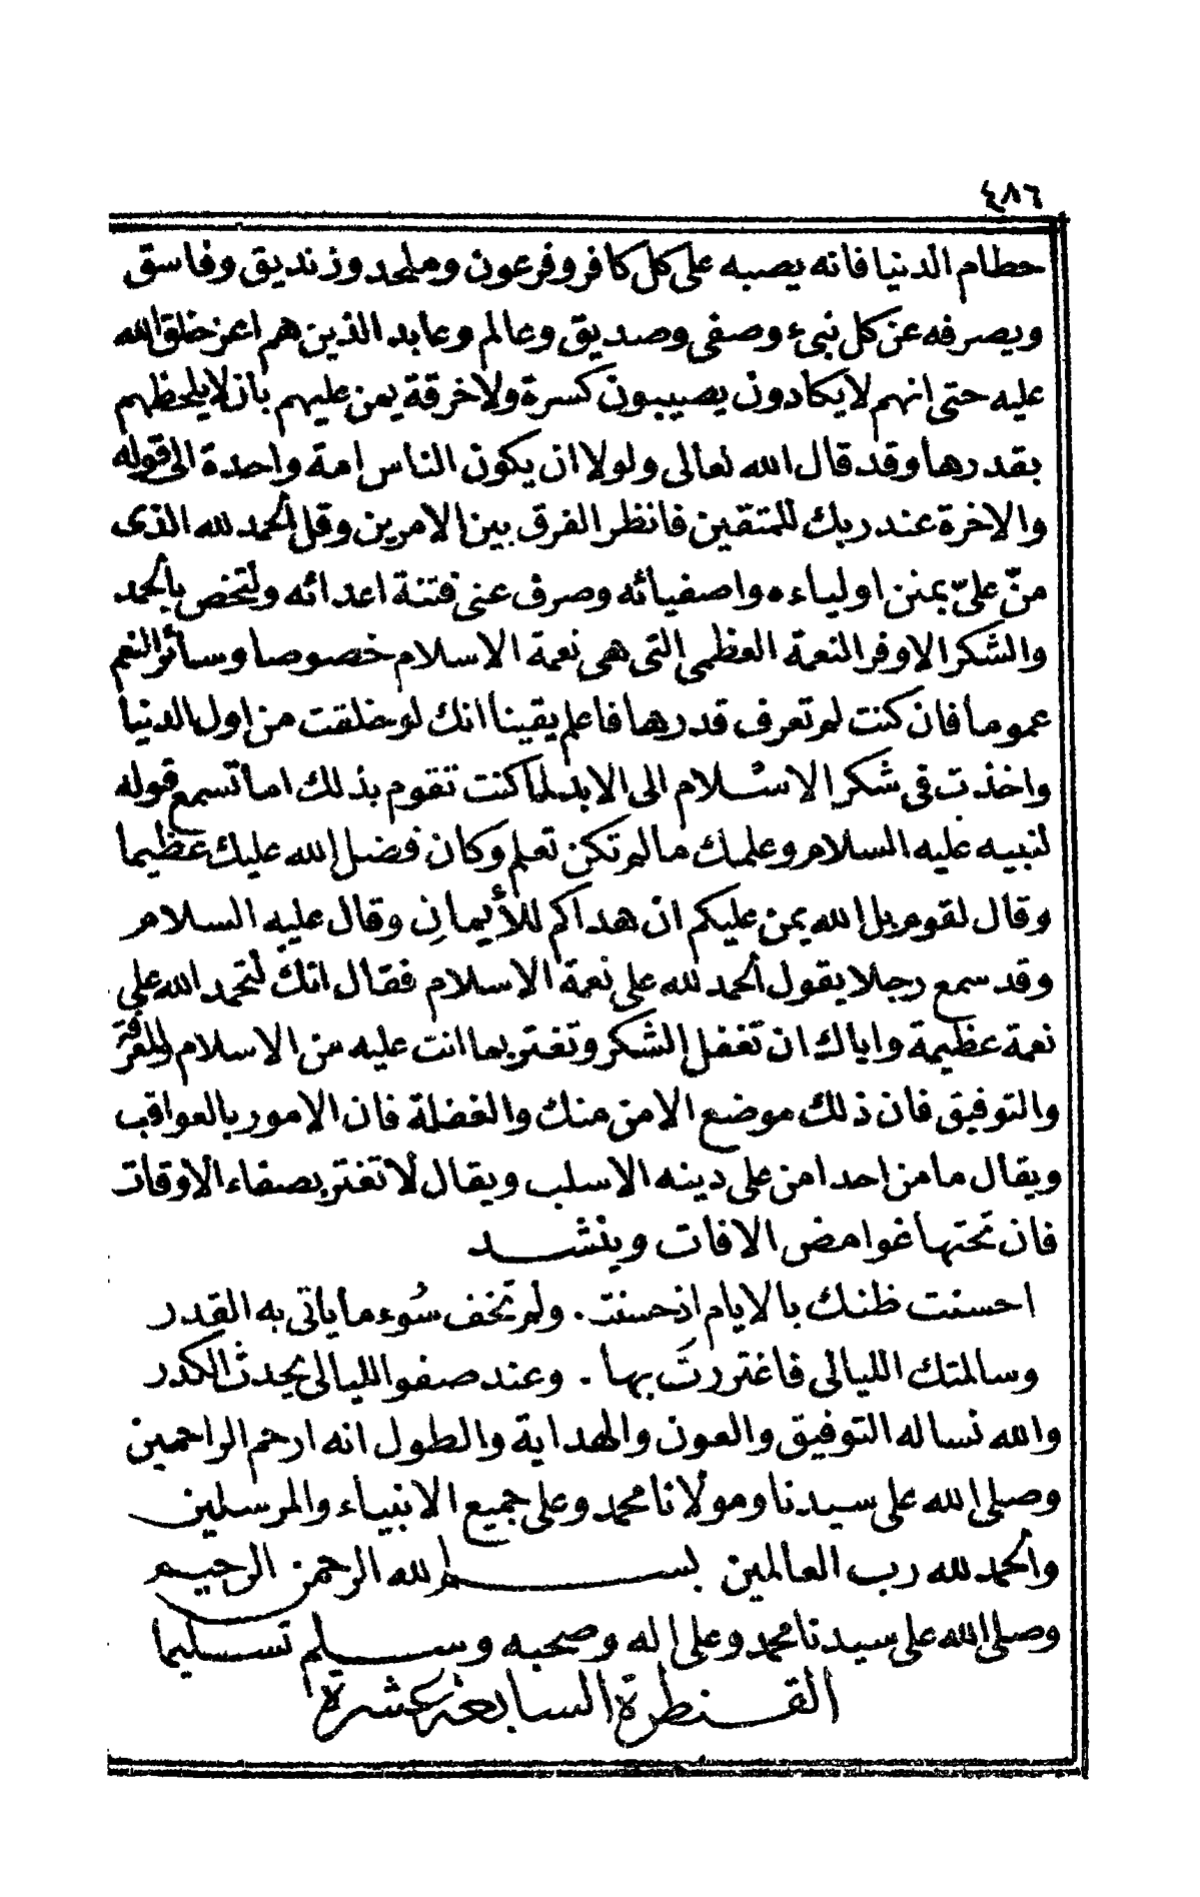 ٤٨٦
حطام الدنيا فانه يصبه على كل كافر وفرعون وملحد وزنديق وفاسق
ويصرفه عن كل نبىء وصفى وصديق وعالم وعابد الذين هم اعز خلق الله
عليه حتى انهم لا يكادون يصيبون كسرة ولا خرقة يمن عليهم بان لا يلحظهم
بقدرها وقد قال الله تعالى ولولا ان يكون الناس امة واحدة الى قوله
والاخرة عند ربك للمتقين فانظر الفرق بين الامرين وقل الحمد لله الذى
منّ علىّ بمنن اولياءه واصفيائه وصرف عنى فتنة اعدائه ولتخص بالحمد
والشكر الاوفر النعمة العظمى التى هى نعمة الاسلام خصوصا وسائر النعم
عموما فان كنت لم تعرف قدرها فاعلم يقينا انك لو خلقت من اول الدنيا
واخذت فى شكر الاسلام الى الابد لما كنت تقوم بذلك اما تسمع قوله
لنبيه عليه السلام وعلمك ما لم تكن تعلم وكان فضل الله عليك عظيما
وقال لقوم بل الله يمن عليكم ان هداكم للأيمان وقال عليه السلام
وقد سمع رجلا يقول الحمد لله على نعمة الاسلام فقال انك لتحمد الله على
نعمة عظيمة واياك ان تغفل الشكر وتغتر بما انت عليه من الاسلام والمعرفة
والتوفيق فان ذلك موضع الامن منك والغفلة فان الامور بالعواقب
ويقال ما من احد امن على دينه الا سلب ويقال لا تغتر بصفاء الاوقات
فان تحتها غوامض الافات وينشد
احسنت ظنك بالايام اذ حسنت . ولم تخف سُوء ما ياتى به القدر
وسالمتك الليالى فاغتررتَ بها . وعند صفو الليالى يحدث الكدر
والله نساله التوفيق والعون والهداية والطول انه ارحم الراحمين
وصلى الله على سيدنا ومولانا محمد وعلى جميع الانبياء والمرسلين
والحمد لله رب العالمين بسم الله الرحمن الرحيم
وصلى الله على سيدنا محمد وعلى اله وصحبه وسلم تسليما
القنطرة السابعة عشرة